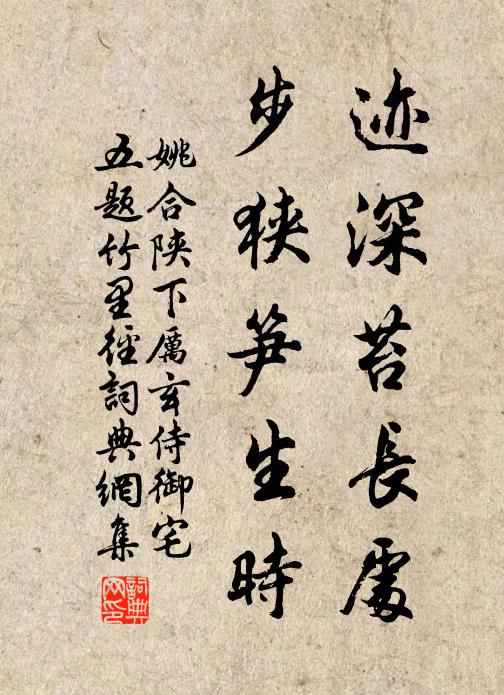 迹深苔長處
步狹笋生時
姚合陝下厲玄侍御宅
五题竹里徑詞典網集
詞典
网印